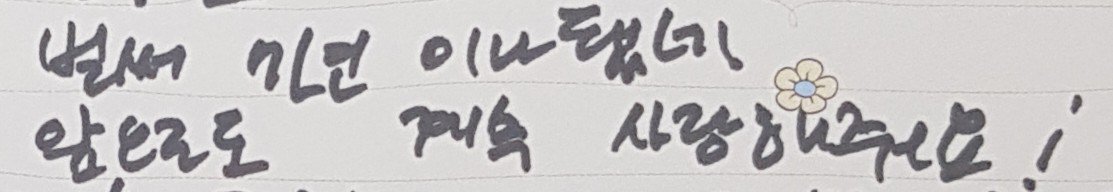 벌써 7년 이나 됐네
앞으로도 계속 사랑해주세요!